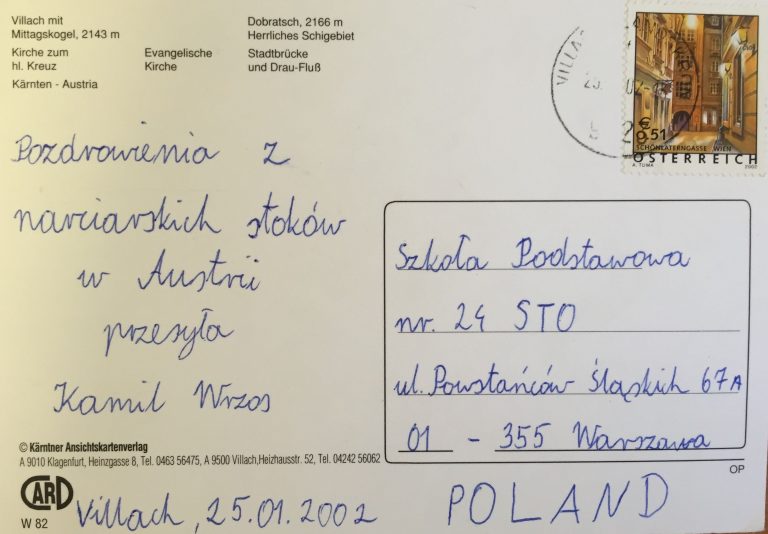 Villach mit
Mittagskogel, 2143 m
Kirche zum
hl. Kreuz
Kärnten - Austria
Evangelische
Kirche
Dobratsch, 2166 m
Herrliches Schigebiet
Stadtbrücke
und Drau-Fluß
€
0.51
SCHÖNLATERNGASSE WIEN
ÖSTERREICH
A. TUMA
2002
Pozdrowienia z
narciarskich stoków
w Austrii
przesyła
Kamil Wrzos
Szkoła Podstawowa
nr. 24 STO
ul. Powstańców Śląskich 67A
01 - 355 Warszawa
OP
© Kärntner Ansichtskartenverlag
A 9010 Klagenfurt, Heinzgasse 8, Tel. 0463 56475, A 9500 Villach, Heizhausstr. 52, Tel. 04242 56062
CARD
W 82
Villach, 25.01.2002
POLAND